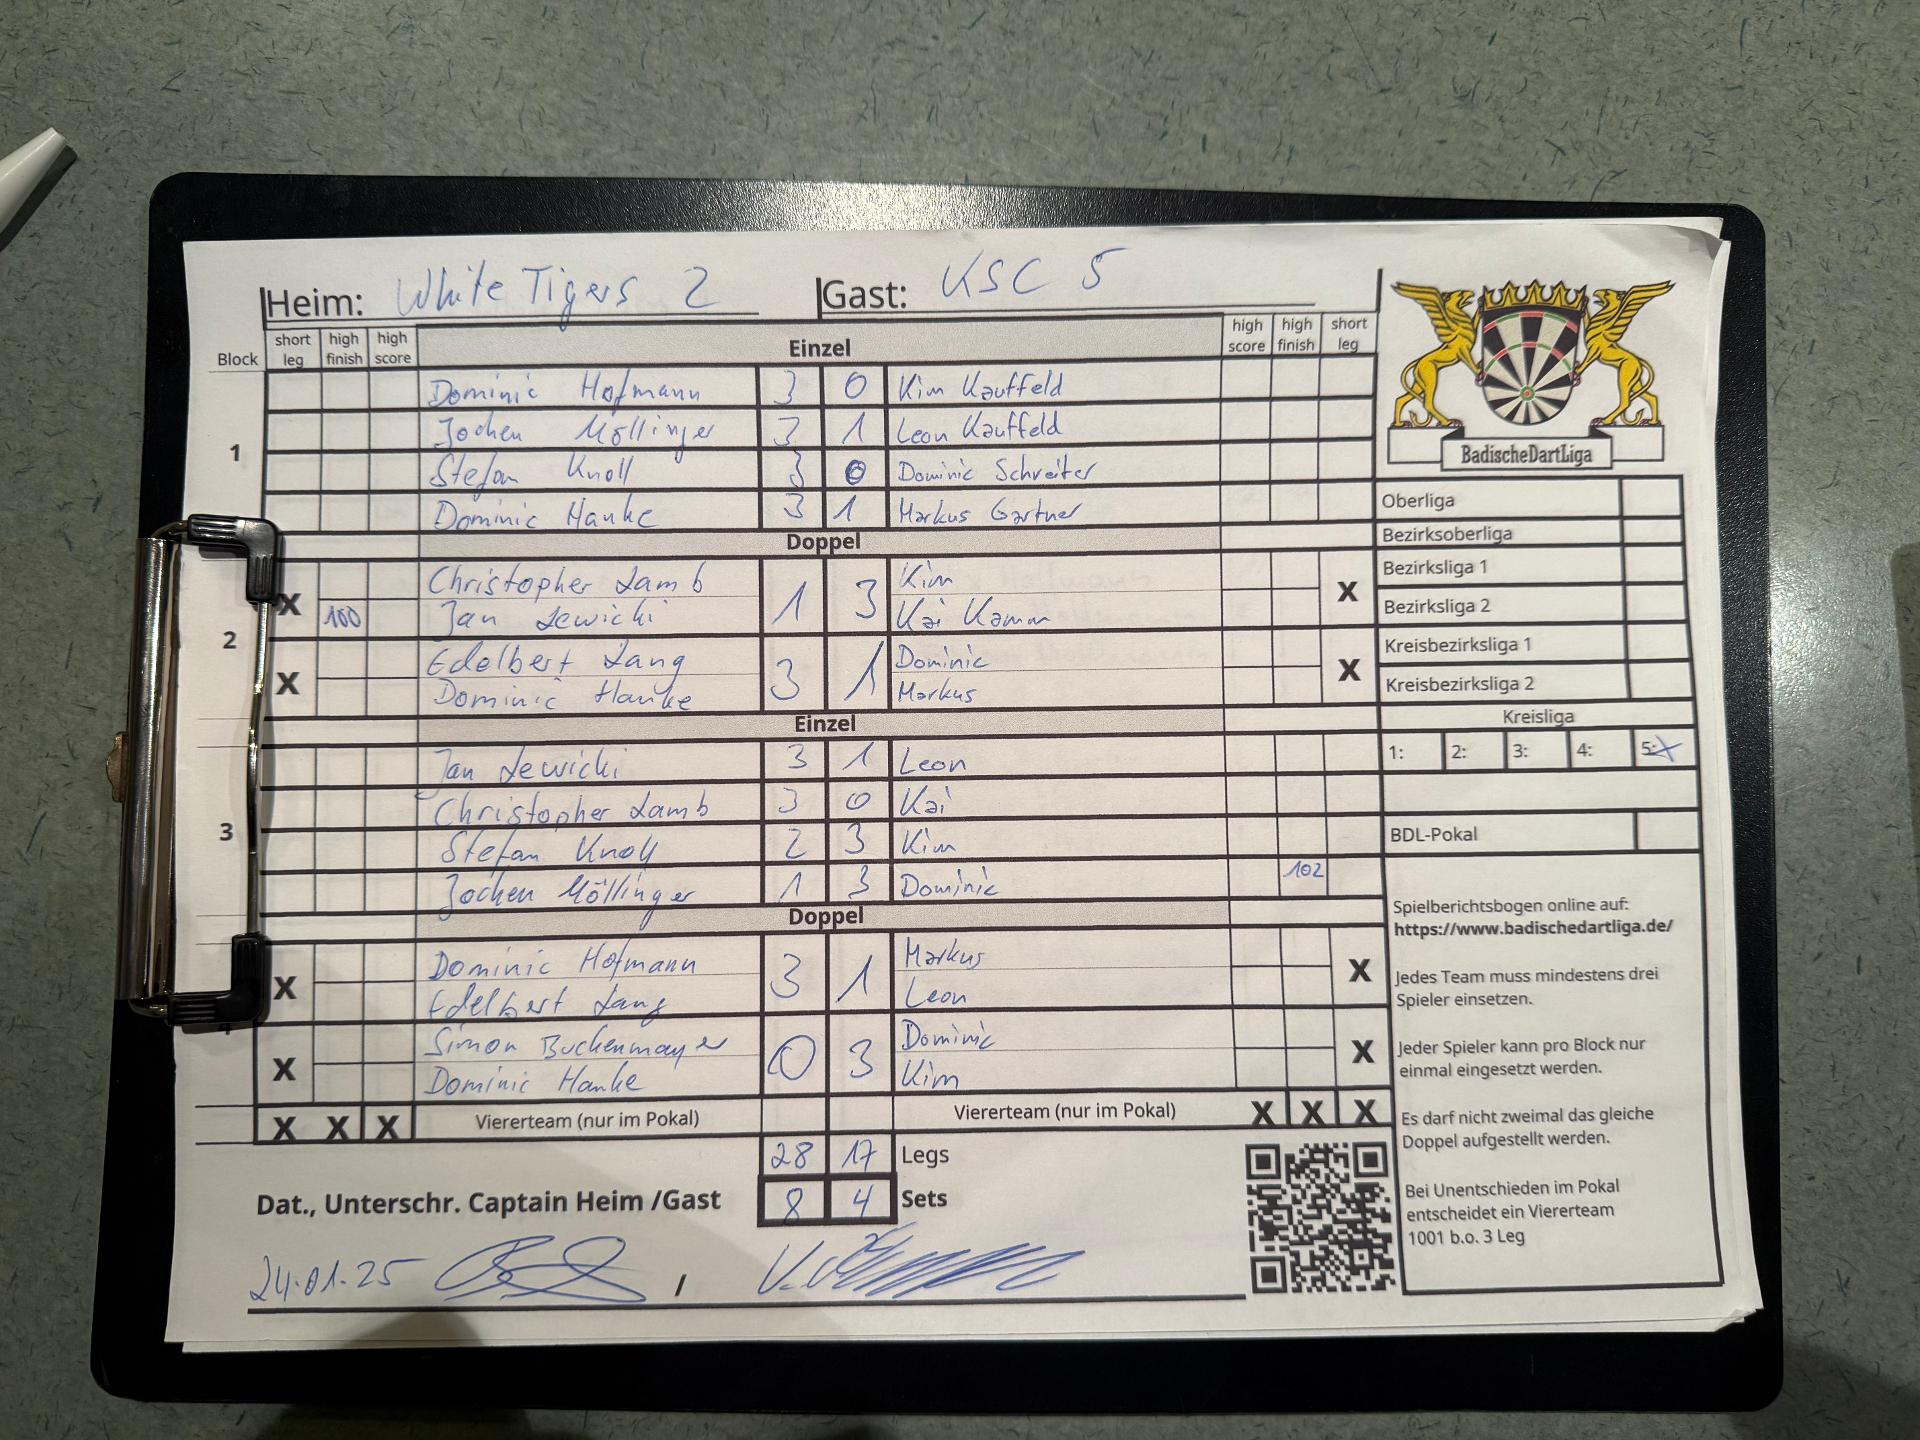 Heim: White Tigers 2 Gast: KSC 5
Block short leg high finish high score Einzel high score high finish short leg
1
Dominic Hofmann 3 0 Kim Kauffeld
Jochen Möllinger 3 1 Leon Kauffeld
Stefan Knoll 3 0 Dominic Schreiter
Dominic Hanke 3 1 Markus Gartner
Doppel
2
X Christopher Lamb 1 3 Kim X
100 Jan Lewicki Kai Kamm
X Edelbert Lang 3 1 Dominic X
Dominic Hanke Markus
Einzel
3
Jan Lewicki 3 1 Leon
Christopher Lamb 3 0 Kai
Stefan Knoll 2 3 Kim
Jochen Möllinger 1 3 Dominic 102
Doppel
4
X Dominic Hofmann 3 1 Markus X
Edelbert Lang Leon
X Simon Buckenmayer 0 3 Dominic X
Dominic Hanke Kim
X X X Viererteam (nur im Pokal) Viererteam (nur im Pokal) X X X
28 17 Legs
Dat., Unterschr. Captain Heim /Gast 8 4 Sets
24.01.25 /
BadischeDartLiga
Oberliga
Bezirksoberliga
Bezirksliga 1
Bezirksliga 2
Kreisbezirksliga 1
Kreisbezirksliga 2
Kreisliga
1: 2: 3: 4: 5: X
BDL-Pokal
Spielberichtsbogen online auf:
https://www.badischedartliga.de/
Jedes Team muss mindestens drei
Spieler einsetzen.
Jeder Spieler kann pro Block nur
einmal eingesetzt werden.
Es darf nicht zweimal das gleiche
Doppel aufgestellt werden.
Bei Unentschieden im Pokal
entscheidet ein Viererteam
1001 b.o. 3 Leg